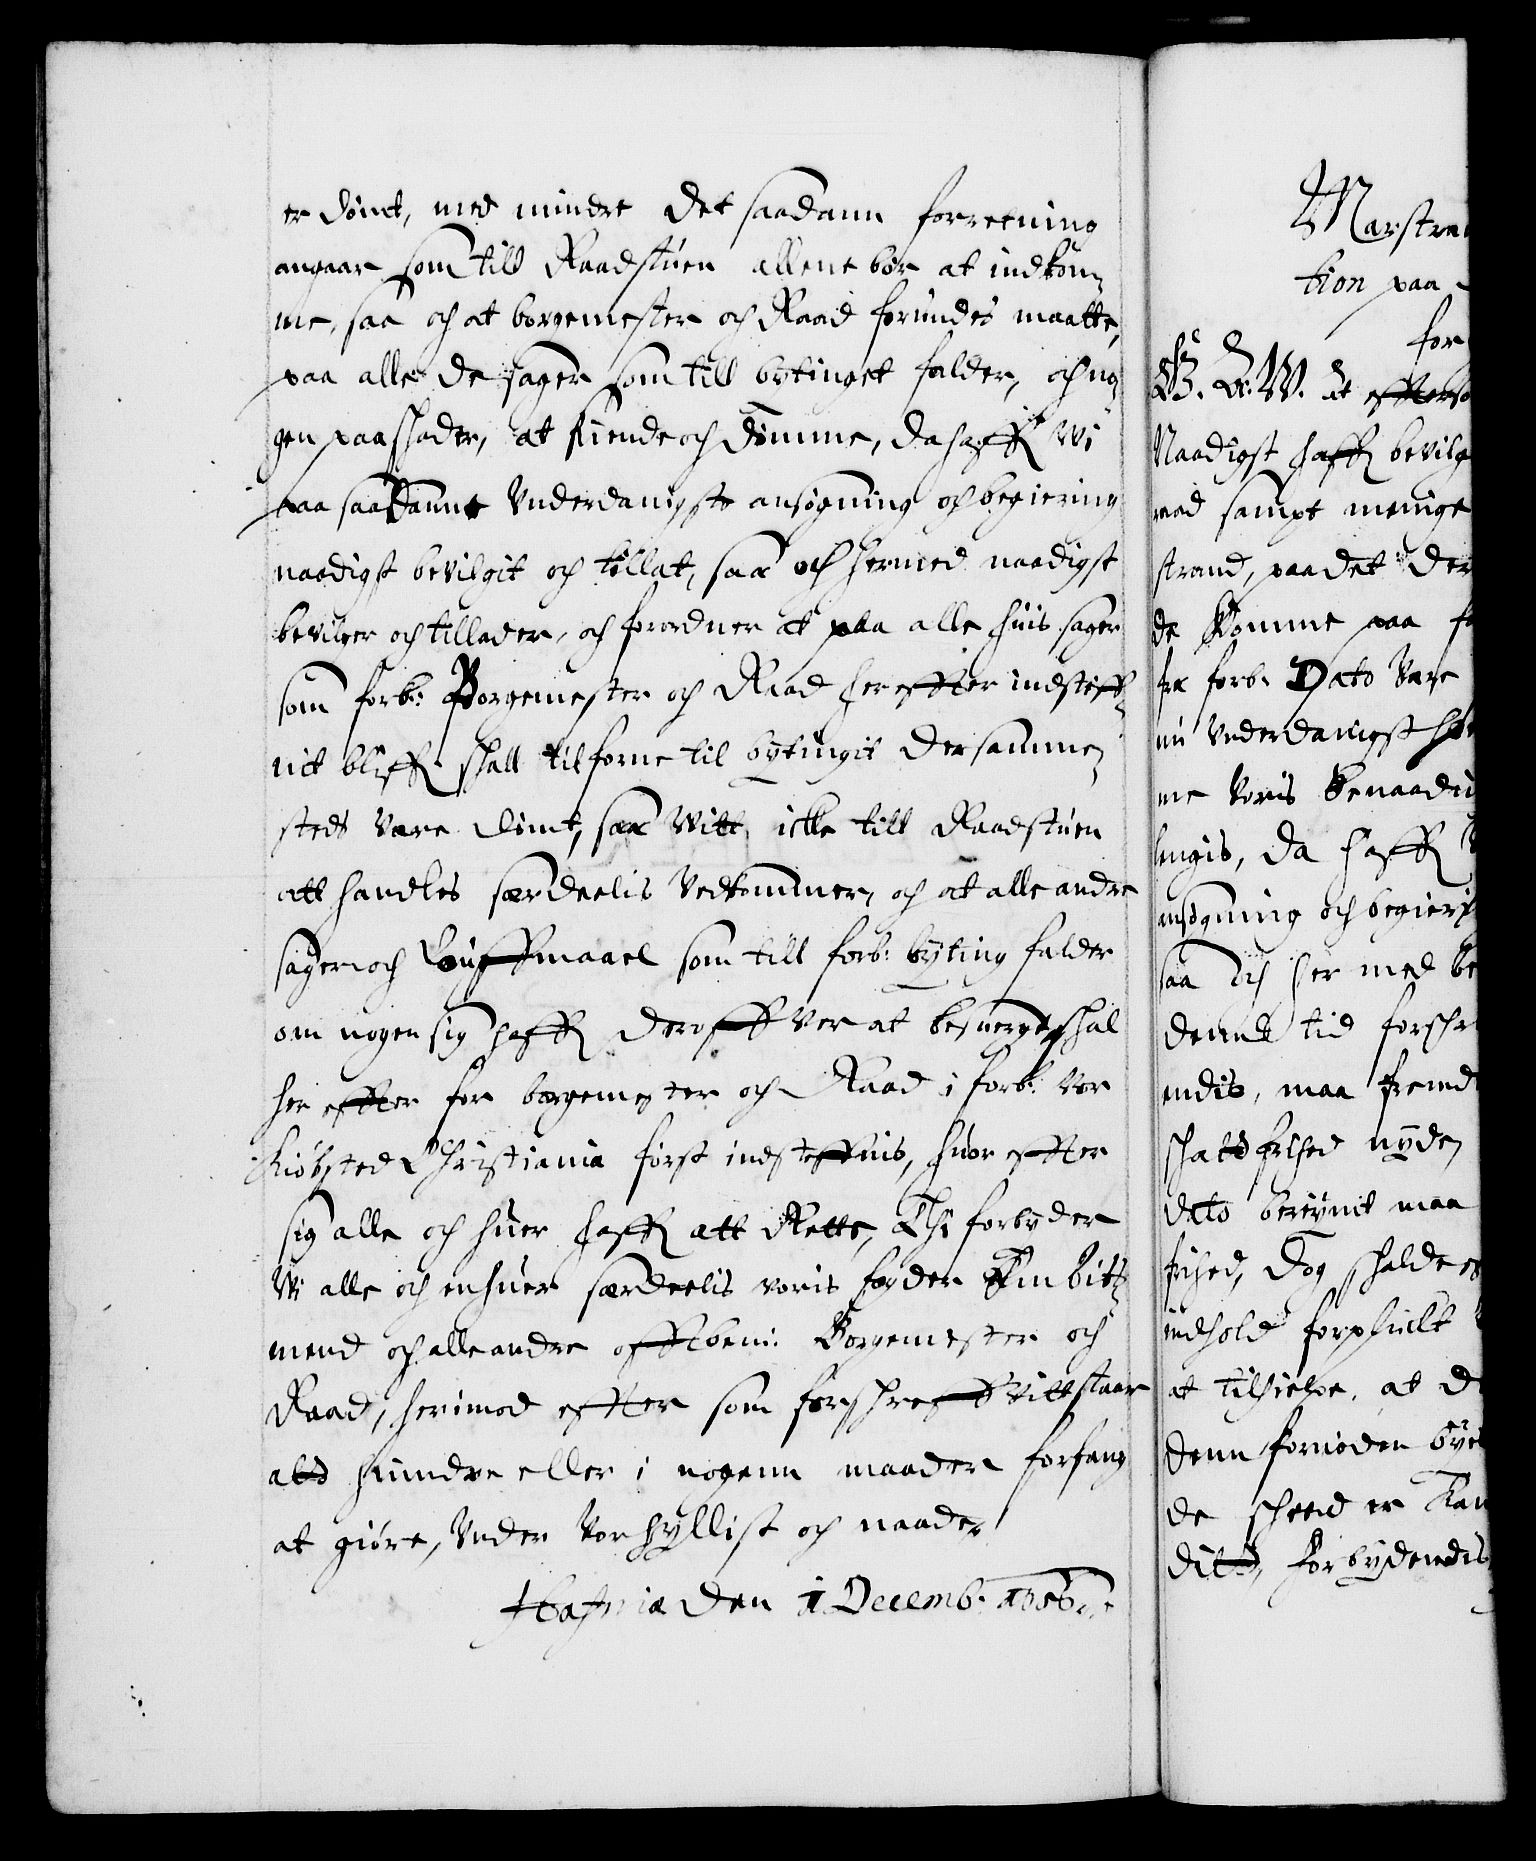 er dömt, med mindre det saadann forretning
angaar som till Raadstuen allene bör at indkom¬
me, saa och at borgemester och Raad forundes maatte,
paa alle de sager som till bytinget falder, och no¬
gen paaschader, at kiende och dömme, da haffr Wi
paa saadannt Vnderdanigste ansögning och begiering
naadigst bevilgit och tillat, saa och hermed naadigst
bevilger och tillader, och forordner at paa alle huis sager
som forb: Borgemester och Raad hereffter indsteff¬
nit bliffr schall tilforne til bytingit dersamme¬
steds være dömt, saa Witt, icke till Raadstuen
att handles særdeelis Vedkommer, och at alle andre
sager och Louffmaael som till forb: byting falder
om nogen sig haffr deroffVer at besuerge, schal
her effter for borgemester och Raad i forb: Vor
Kiöbsted Christiania först indsteffnis, huor effter
sig alle och huer haffr att Rette, Thi forbyder
Wi alle och enhuer særdeelis voris fogder Embits¬
mend och alle andre offtben: Borgemester och
Raad, herimod efter som forschreffVitt staar
att hindre eller i nogenn maader forfang
at giöre, Vnder Vor hyllist och naade,
Hafniæ den 1 Decemb.
Marstran
tion paa
for
G. A. W. At efftersom
Naadigst haffr bevilg
raad sampt menige
strand, paa det der
de komme paa
fra forb. Dato Vare
nu Vnderdanigst
me Voris Benaadi
lengis, da haffr
ansögning och begieri
saa och her med be
dennd tid forschr
endis, maa fremd
schatt frihed nyde,
dato beregnit maa
frihed, dog schulde
indhold forplicht
at tilhielpe, at d
denn fornöden bye
de scheed er Kan
ditt, Forbydendis